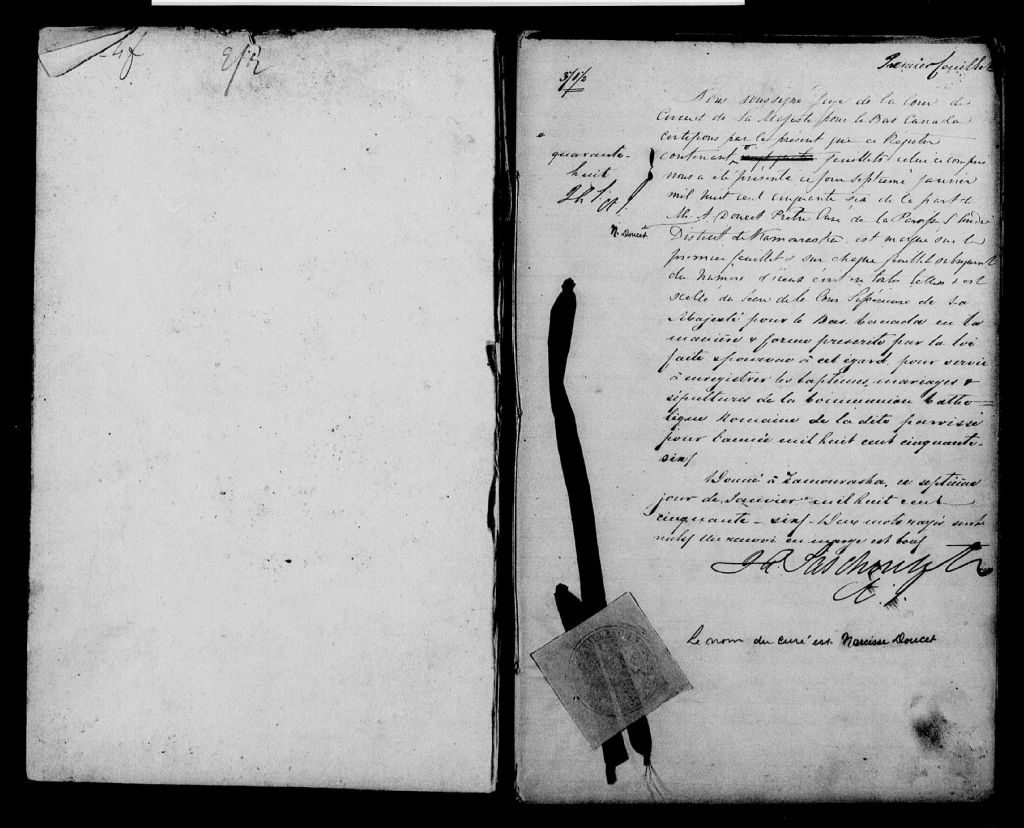 Premier feuillet
Nous soussigné Juge de la Cour de
Circuit de Sa Majesté pour le Bas Canada
certifions par le présent que ce Régistre
contenant feuillets celui ci compris
quarante-
huit
nous a été présenté ce jour septième janvier
mil huit cent cinquante six de la part de
M. Doucet Prêtre Curé de la Paroisse St André
N. Doucet
District de Kamouraska, est marqué sur le
premier feuillet & sur chaque feuillet subséquent
du Numéro d'iceux écrit en toutes lettres & est
scellé du Sceau de la Cour Supérieure de Sa
Majesté pour le Bas Canada en la
manière & forme prescrite par la loi
faite & pourvue à cet égard, pour servir
à enregistrer les baptêmes, mariages &
sépultures de la Communion Catho-
lique Romaine de la dite paroisse
pour l'année mil huit cent cinquante-
six/
Donné à Kamouraska, ce septième
jour de Janvier mil huit cent
cinquante-six/. Deux mots rayés sont
nuls/ Un renvoi en marge est bon/
Le nom du curé est Narcisse Doucet